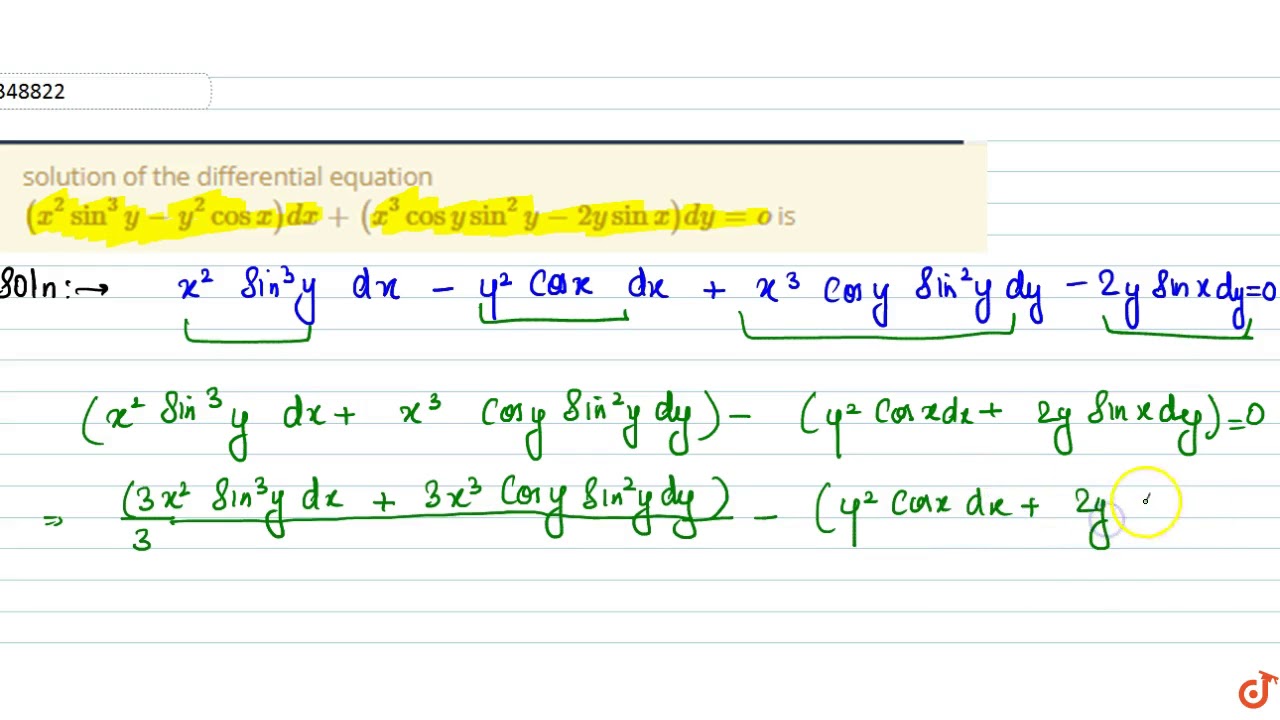 348822
solution of the differential equation
(x² sin³ y − y² cos x)dx + (x³ cos y sin² y − 2y sin x)dy = o is
Soln:→ x² Sin³y dx − y² Cosx dx + x³ Cosy Sin²y dy − 2y Sinx dy=0
(x² Sin³y dx + x³ Cosy Sin²y dy) − (y² Cosxdx + 2y Sinx dy)=0
⇒ (3x² Sin³y dx + 3x³ Cosy Sin²y dy) − (y² Cosx dx + 2y
3